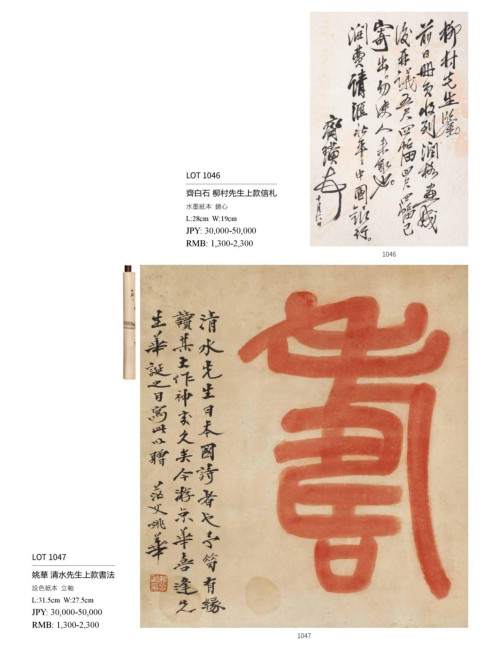 LOT 1046
齊白石 柳村先生上款信札
水墨紙本 鏡心
L:28cm W:19cm
JPY: 30,000-50,000
RMB: 1,300-2,300
柳村先生鑒
前日冊頁收到潤格畫
後再議五尺四幅四尺四幅已
寄出勿使人來取也
潤費請匯北平中國銀行
齊璜
1046
LOT 1047
姚華 清水先生上款書法
設色紙本 立軸
L:31.5cm W:27.5cm
JPY: 30,000-50,000
RMB: 1,300-2,300
壽
清水先生日本國詩者也有緣
讀其大作神交久矣今游京華喜逢先
生華誕之日寫此以贈 茫父姚華
1047